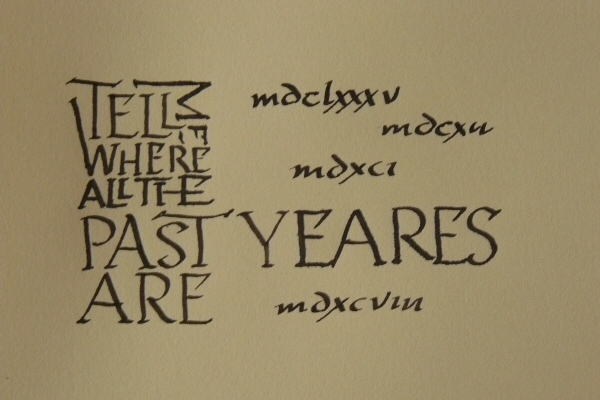 TELL ME mdclxxxv
mdcxii
WHERE mdxci
ALL THE
PAST YEARES
ARE mdxcviii